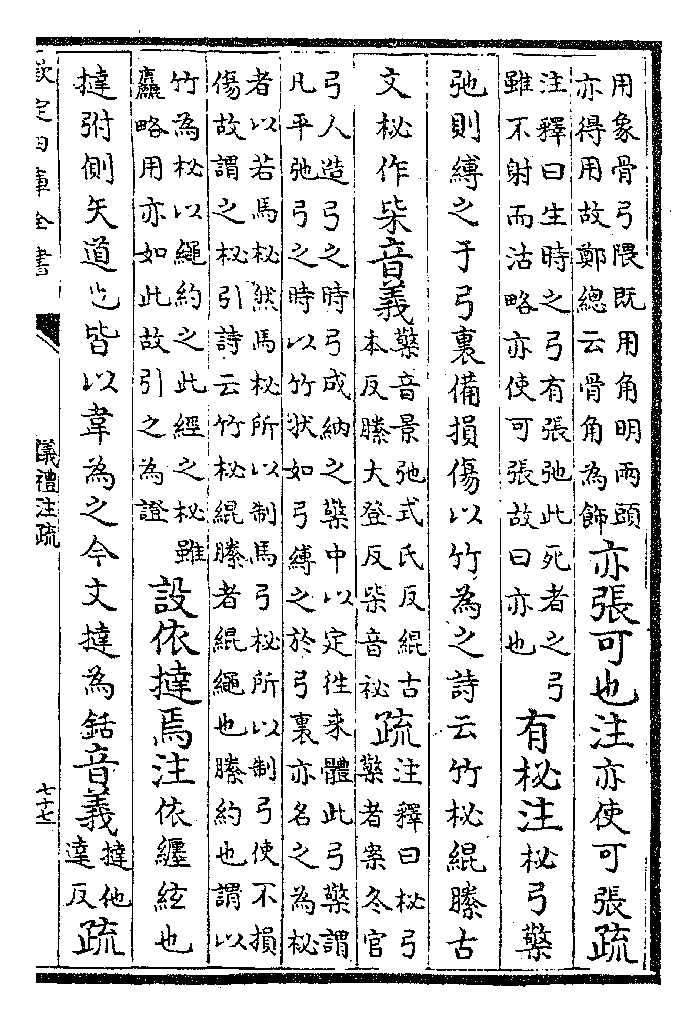 用象骨弓隈既用角明兩頭
亦得用故鄭總云骨角為飾
亦張可也注亦使可張疏
注釋曰生時之弓有張弛此死者之弓
雖不射而沽略亦使可張故曰亦也
有柲注柲弓檠
弛則縛之于弓裏備損傷以竹為之詩云竹柲緄縢古
文柲作柴音義
檠音景弛式氏反緄古
本反縢大登反柴音祕
疏
注釋曰柲弓
檠者案冬官
弓人造弓之時弓成納之檠中以定往來體此弓檠謂
凡平弛弓之時以竹狀如弓縛之於弓裏亦名之為柲
者以若馬柲然馬柲所以制馬弓柲所以制弓使不損
傷故謂之柲引詩云竹柲緄縢者緄繩也縢約也謂以
竹為柲以繩約之此經之柲雖
麤略用亦如此故引之為證
設依撻焉注依纏絃也
撻弣側矢道也皆以韋為之今文撻為銛音義
撻他
達反
疏
欽定四庫全書
儀禮注疏
七十七